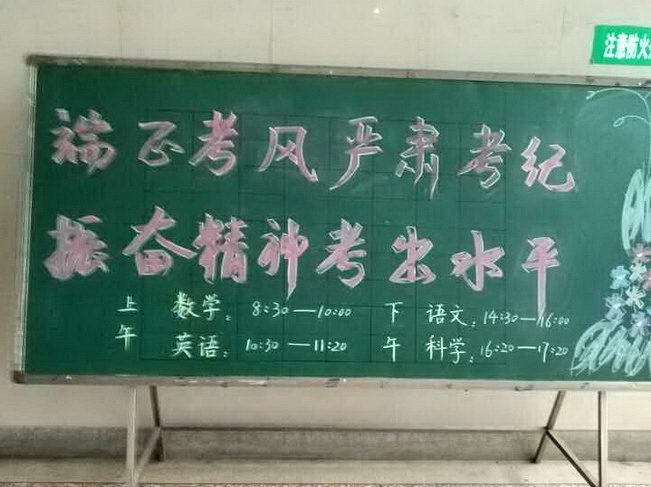 注意防火
端正考风严肃考纪
振奋精神考出水平
上午 数学：8:30—10:00 下午 语文：14:30—16:00
英语：10:30—11:20 科学：16:20—17:20